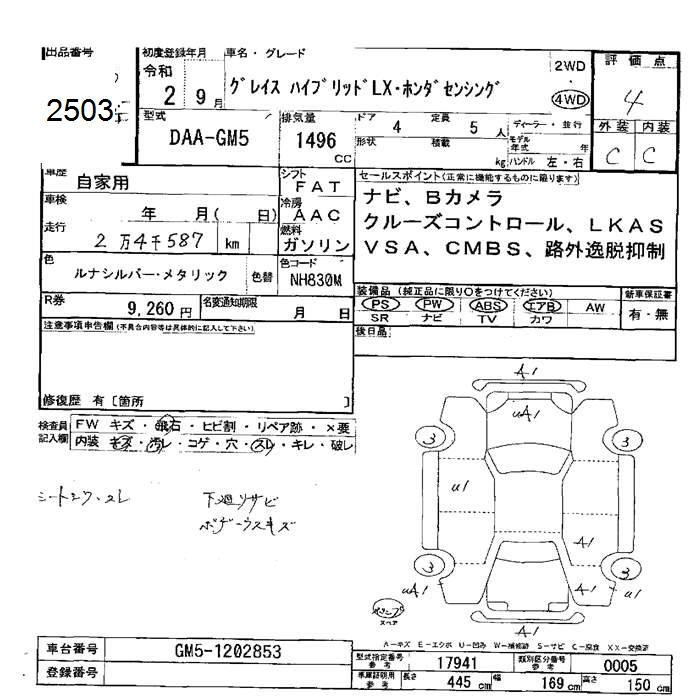 出品番号
2503
初度登録年月
令和
2 9月
車名・グレード
グレイス ハイブリッドLX・ホンダセンシング
2WD
4WD
評価点
4
外装 内装
C C
型式
DAA-GM5
排気量
1496
CC
ドア
4
定員
5 人
形状
積載
kg
ディーラー・並行
モデル年式 年
ハンドル 左・右
車歴
自家用
シフト
FAT
車検
年 月( 日)
冷房
AAC
走行
2万4千587 km
燃料
ガソリン
色
ルナシルバー・メタリック
色替
色コード
NH830M
セールスポイント(正常に機能するものに限ります)
ナビ、Bカメラ
クルーズコントロール、LKAS
VSA、CMBS、路外逸脱抑制
R券
9,260円
名変通知期限
月 日
装備品(純正品に限り○をつけてください)
PS PW ABS エアB AW
SR ナビ TV カワ
新車保証書
有・無
注意事項申告欄(不具合内容等は具体的に記入して下さい)
後日品
修復歴 有〔箇所 〕
検査員記入欄
FW キズ・飛石・ヒビ割・リペア跡・×要
内装 キズ・汚レ・コゲ・穴・スレ・キレ・破レ
下廻リサビ
A1
uA1
3 3
u1
A1
A1
3 3
uA1
u1
A1
スペア
A-キズ E-エクボ U-凹み W-補修跡 S-サビ C-腐食 XX-交換済
車台番号
GM5-1202853
登録番号
型式指定番号
参考
17941
類別区分番号
参考
0005
車庫証明用
参考
長さ 445 cm 幅 169 cm 高さ 150 cm